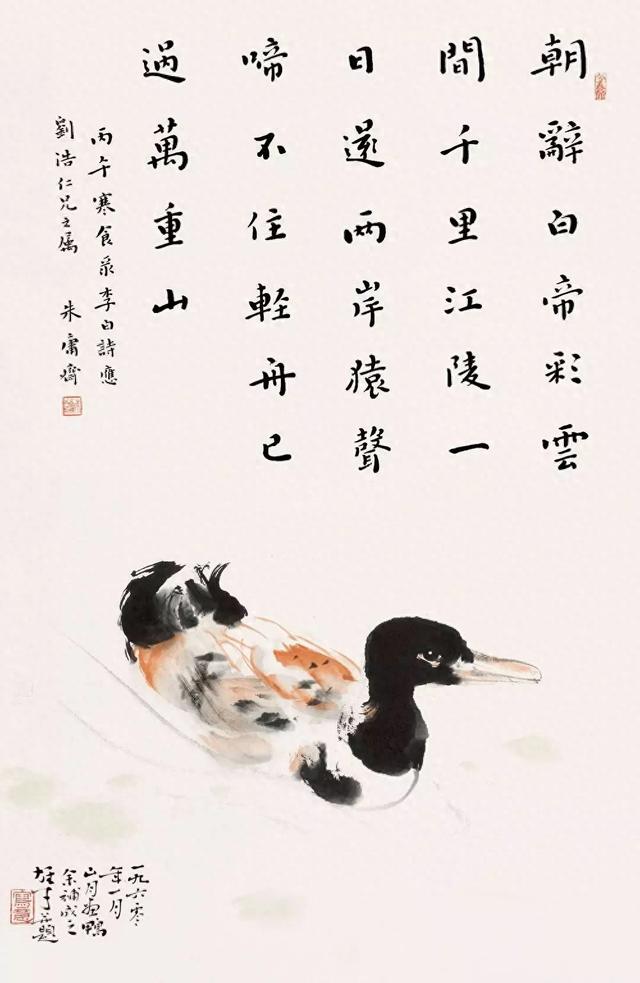 朝辭白帝彩雲
間千里江陵一
日還兩岸猿聲
啼不住輕舟已
過萬重山
丙午寒食录李白詩應
劉浩仁兄之属 朱庸齋
一九六零
年一月
山月畫鴨
余補成之
雄才並題